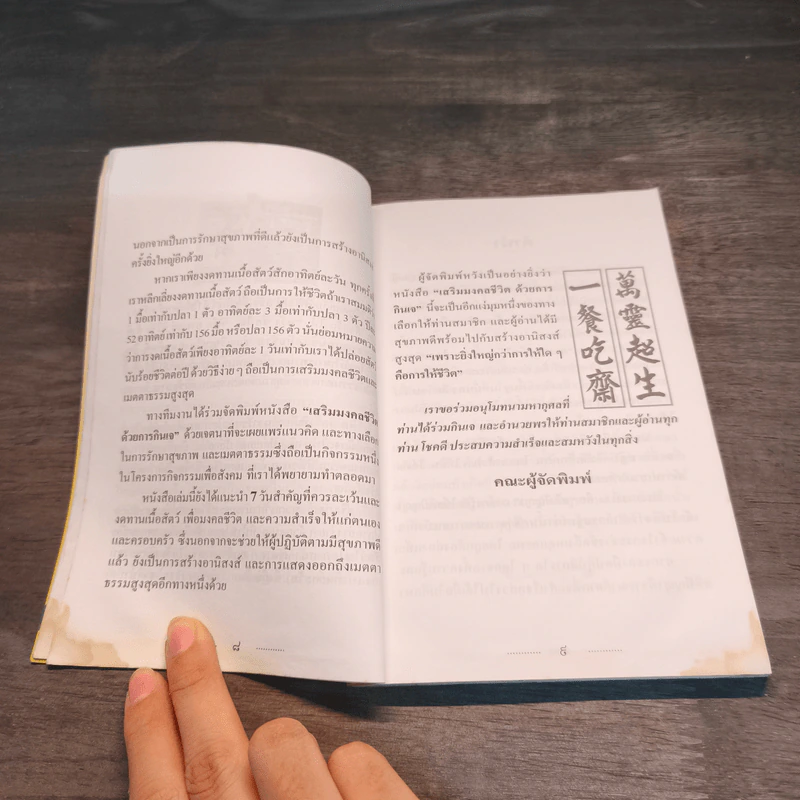 นอกจากเป็นการรักษาสุขภาพที่ดีแล้วยังเป็นการสร้างอานิสงส์
ครั้งยิ่งใหญ่อีกด้วย
หากเราเพียงงดทานเนื้อสัตว์สักอาทิตย์ละวัน ทุกครั้งที่
เราหลีกเลี่ยงงดทานเนื้อสัตว์ ถือเป็นการให้ชีวิตถ้าเราสมมติ
1 มื้อเท่ากับปลา 1 ตัว อาทิตย์ละ 3 มื้อเท่ากับปลา 3 ตัว ปีละ
52 อาทิตย์เท่ากับ 156 มื้อ หรือปลา 156 ตัว นั่นย่อมหมายความ
ว่าการงดเนื้อสัตว์เพียงอาทิตย์ละ 1 วันเท่ากับเราได้ปล่อยสัตว์
นับร้อยชีวิตต่อปี ด้วยวิธีง่าย ๆ ถือเป็นการเสริมมงคลชีวิตและ
เมตตาธรรมสูงสุด
ทางทีมงานได้ร่วมจัดพิมพ์หนังสือ “เสริมมงคลชีวิต
ด้วยการกินเจ” ด้วยเจตนาที่จะเผยแพร่แนวคิด และทางเลือก
ในการรักษาสุขภาพ และเมตตาธรรมซึ่งถือเป็นกิจกรรมหนึ่ง
ในโครงการกิจกรรมเพื่อสังคม ที่เราได้พยายามทำตลอดมา
หนังสือเล่มนี้ยังได้แนะนำ 7 วันสำคัญที่ควรละเว้นและ
งดทานเนื้อสัตว์ เพื่อมงคลชีวิต และความสำเร็จให้แก่ตนเอง
และครอบครัว ซึ่งนอกจากจะช่วยให้ผู้ปฏิบัติตามมีสุขภาพดี
แล้ว ยังเป็นการสร้างอานิสงส์ และการแสดงออกถึงเมตตา
ธรรมสูงสุดอีกทางหนึ่งด้วย
๘ ............
ผู้จัดพิมพ์หวังเป็นอย่างยิ่งว่า
หนังสือ “เสริมมงคลชีวิต ด้วยการ
กินเจ” นี้จะเป็นอีกแง่มุมหนึ่งของทาง
เลือกให้ท่านสมาชิก และผู้อ่านได้มี
สุขภาพดีพร้อมไปกับสร้างอานิสงส์
สูงสุด “เพราะยิ่งใหญ่กว่าการให้ใด ๆ
คือการให้ชีวิต”
萬靈超生
一餐吃齋
เราขอร่วมอนุโมทนามหากุศลที่
ท่านได้ร่วมกินเจ และอำนวยพรให้ท่านสมาชิกและผู้อ่านทุก
ท่าน โชคดี ประสบความสำเร็จและสมหวังในทุกสิ่ง
คณะผู้จัดพิมพ์
............ ๙ ............